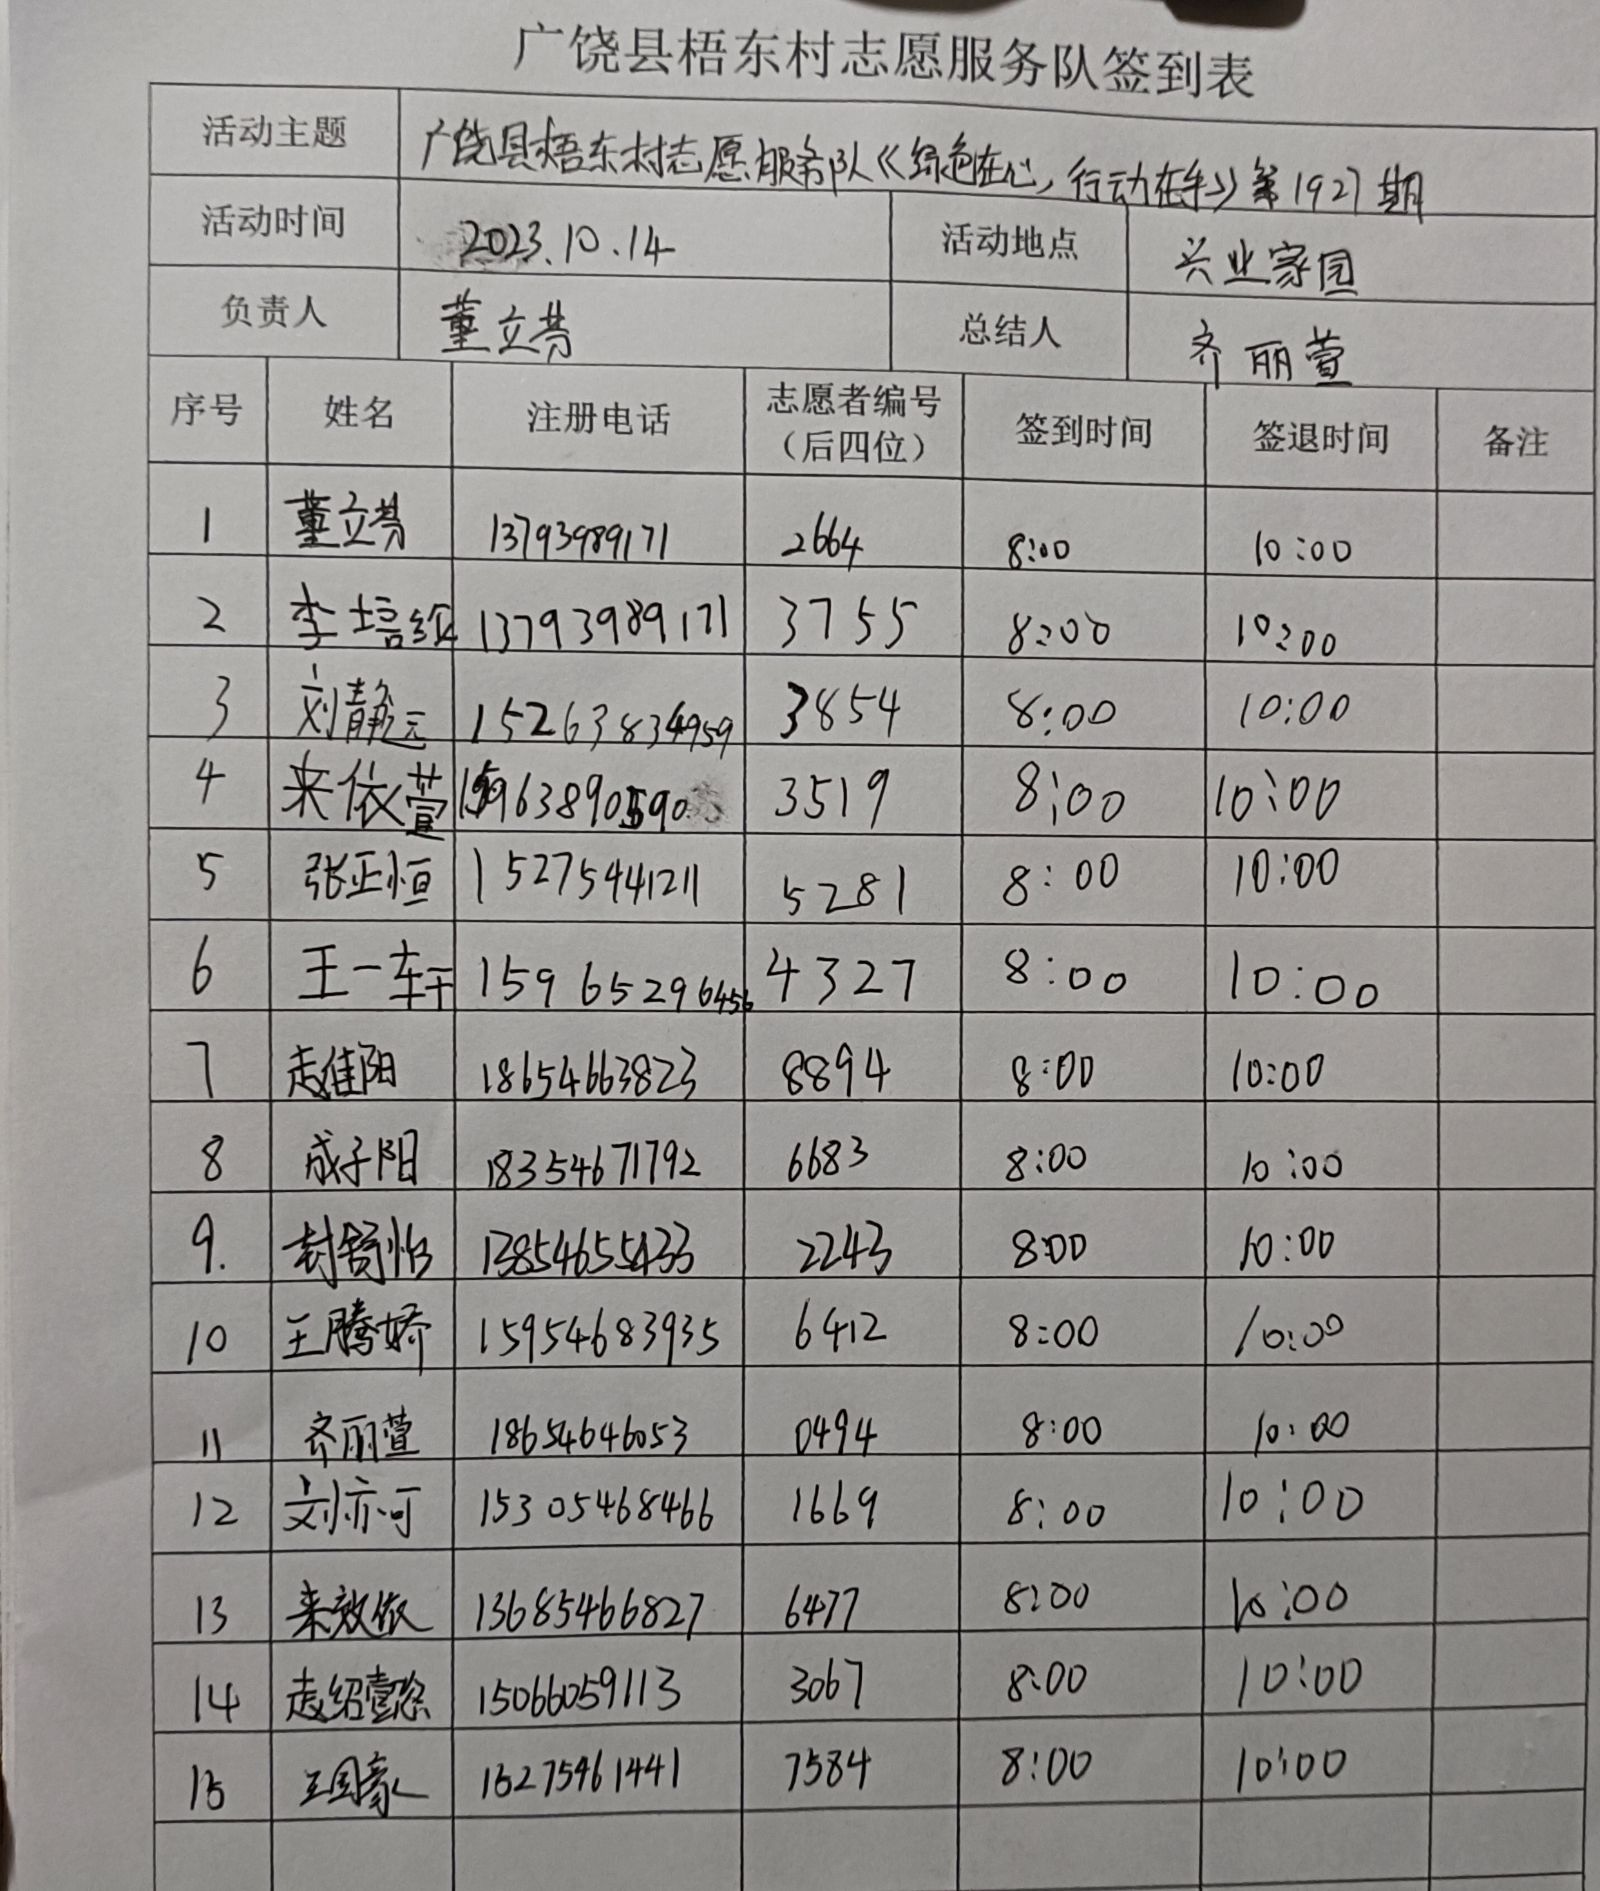 广饶县梧东村志愿服务队签到表
活动主题 广饶县梧东村志愿服务队《绿色在心，行动在手》第1927期
活动时间 2023.10.14 活动地点 兴业家园
负责人 董立芬 总结人 齐丽萱
序号 姓名 注册电话 志愿者编号（后四位） 签到时间 签退时间 备注
1 董立芬 13793989171 2664 8:00 10:00
2 李培红 13793989171 3755 8:00 10:00
3 刘静远 15263834959 3854 8:00 10:00
4 来依萱 3519 8:00 10:00
5 张正恒 15275441211 5281 8:00 10:00
6 王一轩 15965296456 4327 8:00 10:00
7 赵佳阳 18654663823 8894 8:00 10:00
8 成子阳 18354671792 6683 8:00 10:00
9. 封舒怡 2243 8:00 10:00
10 王腾娇 15954683935 6412 8:00 10:00
11 齐丽萱 18654646053 0494 8:00 10:00
12 刘亦可 15305468466 1669 8:00 10:00
13 来效依 13685466827 6477 8:00 10:00
14 赵绍 15066059113 3067 8:00 10:00
15 王国豪 15275461441 7584 8:00 10:00